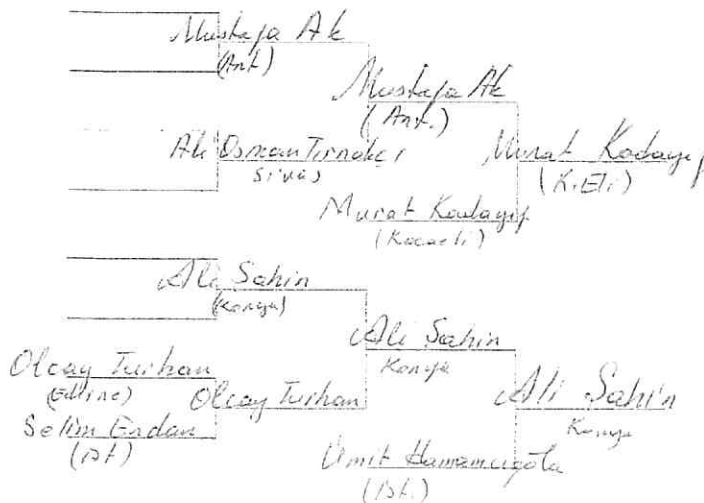 Mustafa Ak
(Ant)
Mustafa Ak
(Ant.)
Ali Osman Tırnakçı
Sivas
Murat Kadayıf
(K.Eli)
Murat Kadayıf
(Kocaeli)
Ali Şahin
(Konya)
Ali Şahin
Konya
Olcay Turhan
(Edirne)
Olcay Turhan
Ali Şahin
Konya
Selim Erdan
(İst.)
Ümit Hamamcıoğlu
(İst.)